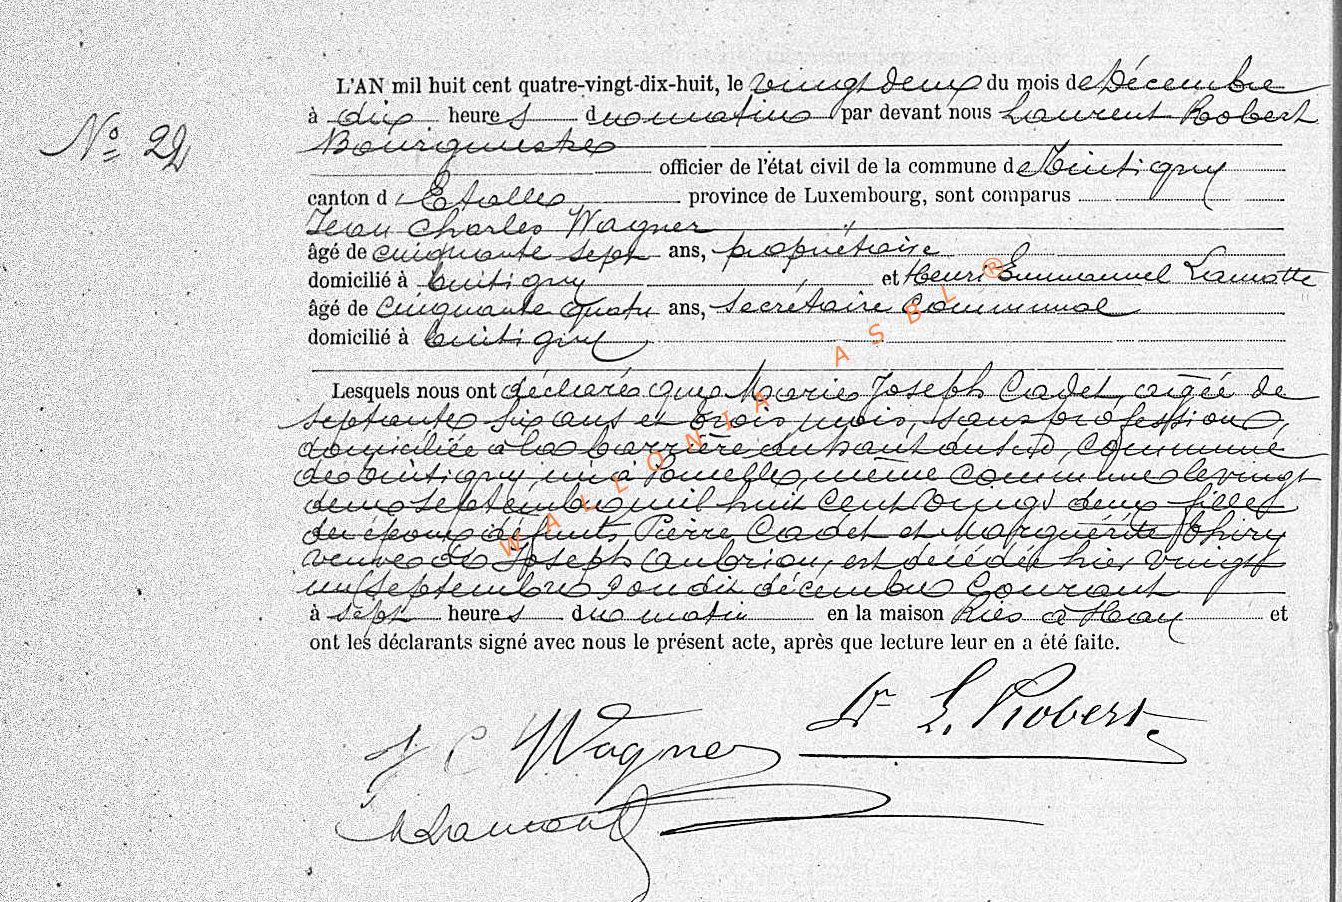 L'AN mil huit cent quatre-vingt-dix-huit, le vingt deux du mois de Décembre
Nº 22
à dix heures du matin par devant nous Laurent Robert
Bourgmestre
officier de l'état civil de la commune de Tintigny
canton d'Etalle province de Luxembourg, sont comparus
Jean Charles Wagner
âgé de cinquante sept ans, propriétaire
domicilié à Tintigny et Henri Emmanuel Lamotte
âgé de cinquante quatre ans, secrétaire communal
domicilié à Tintigny
Lesquels nous ont déclaré que Marie Joseph Cadet, agée de
septante six ans et trois mois, sans profession,
domiciliée à la barrière du haut, commune
de Tintigny, née à même commune le vingt
deux septembre mil huit cent vingt deux fille
des époux défunts Pierre Cadet et Marguerite Thiry
veuve de Joseph, est décédée hier vingt
un septembre dudit décembre courant
à sept heures du matin en la maison à Han et
ont les déclarants signé avec nous le présent acte, après que lecture leur en a été faite.
L. Robert
J C Wagner
Lamotte
WALLONIA ASBL ®